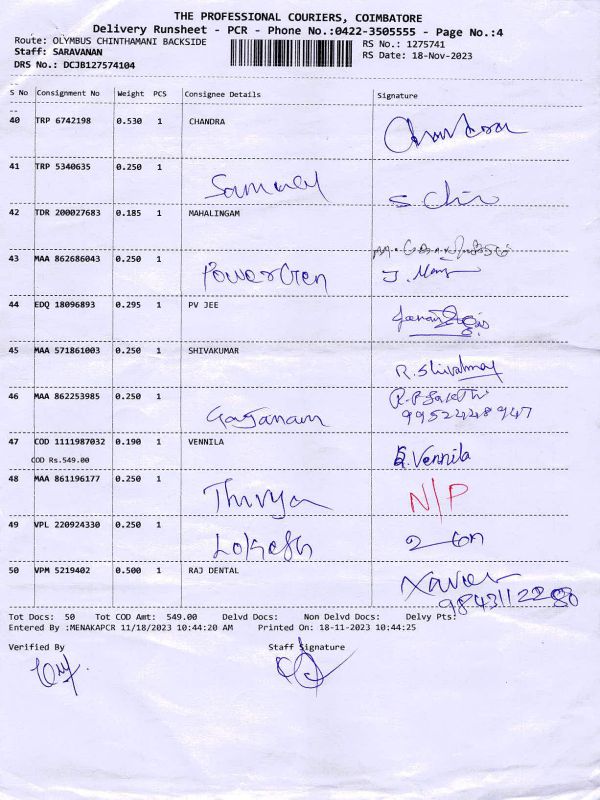 THE PROFESSIONAL COURIERS, COIMBATORE
Delivery Runsheet - PCR - Phone No.:0422-3505555 - Page No.:4
Route: OLYMBUS CHINTHAMANI BACKSIDE RS No.: 1275741
Staff: SARAVANAN RS Date: 18-Nov-2023
DRS No.: DCJB127574104
S No Consignment No Weight PCS Consignee Details Signature
40 TRP 6742198 0.530 1 CHANDRA
41 TRP 5340635 0.250 1 Samuvel
42 TDR 200027683 0.185 1 MAHALINGAM
43 MAA 862686043 0.250 1 PowerGen
44 EDQ 18096893 0.295 1 PV JEE
45 MAA 571861003 0.250 1 SHIVAKUMAR
46 MAA 862253985 0.250 1
9952448947
47 COD 1111987032 0.190 1 VENNILA Vennila
COD Rs.549.00
48 MAA 861196177 0.250 1 Thivya N/P
49 VPL 220924330 0.250 1 Lokesh
50 VPM 5219402 0.500 1 RAJ DENTAL Xavier
Tot Docs: 50 Tot COD Amt: 549.00 Delvd Docs: Non Delvd Docs: Delvy Pts:
Entered By :MENAKAPCR 11/18/2023 10:44:20 AM Printed On: 18-11-2023 10:44:25
Verified By Staff Signature